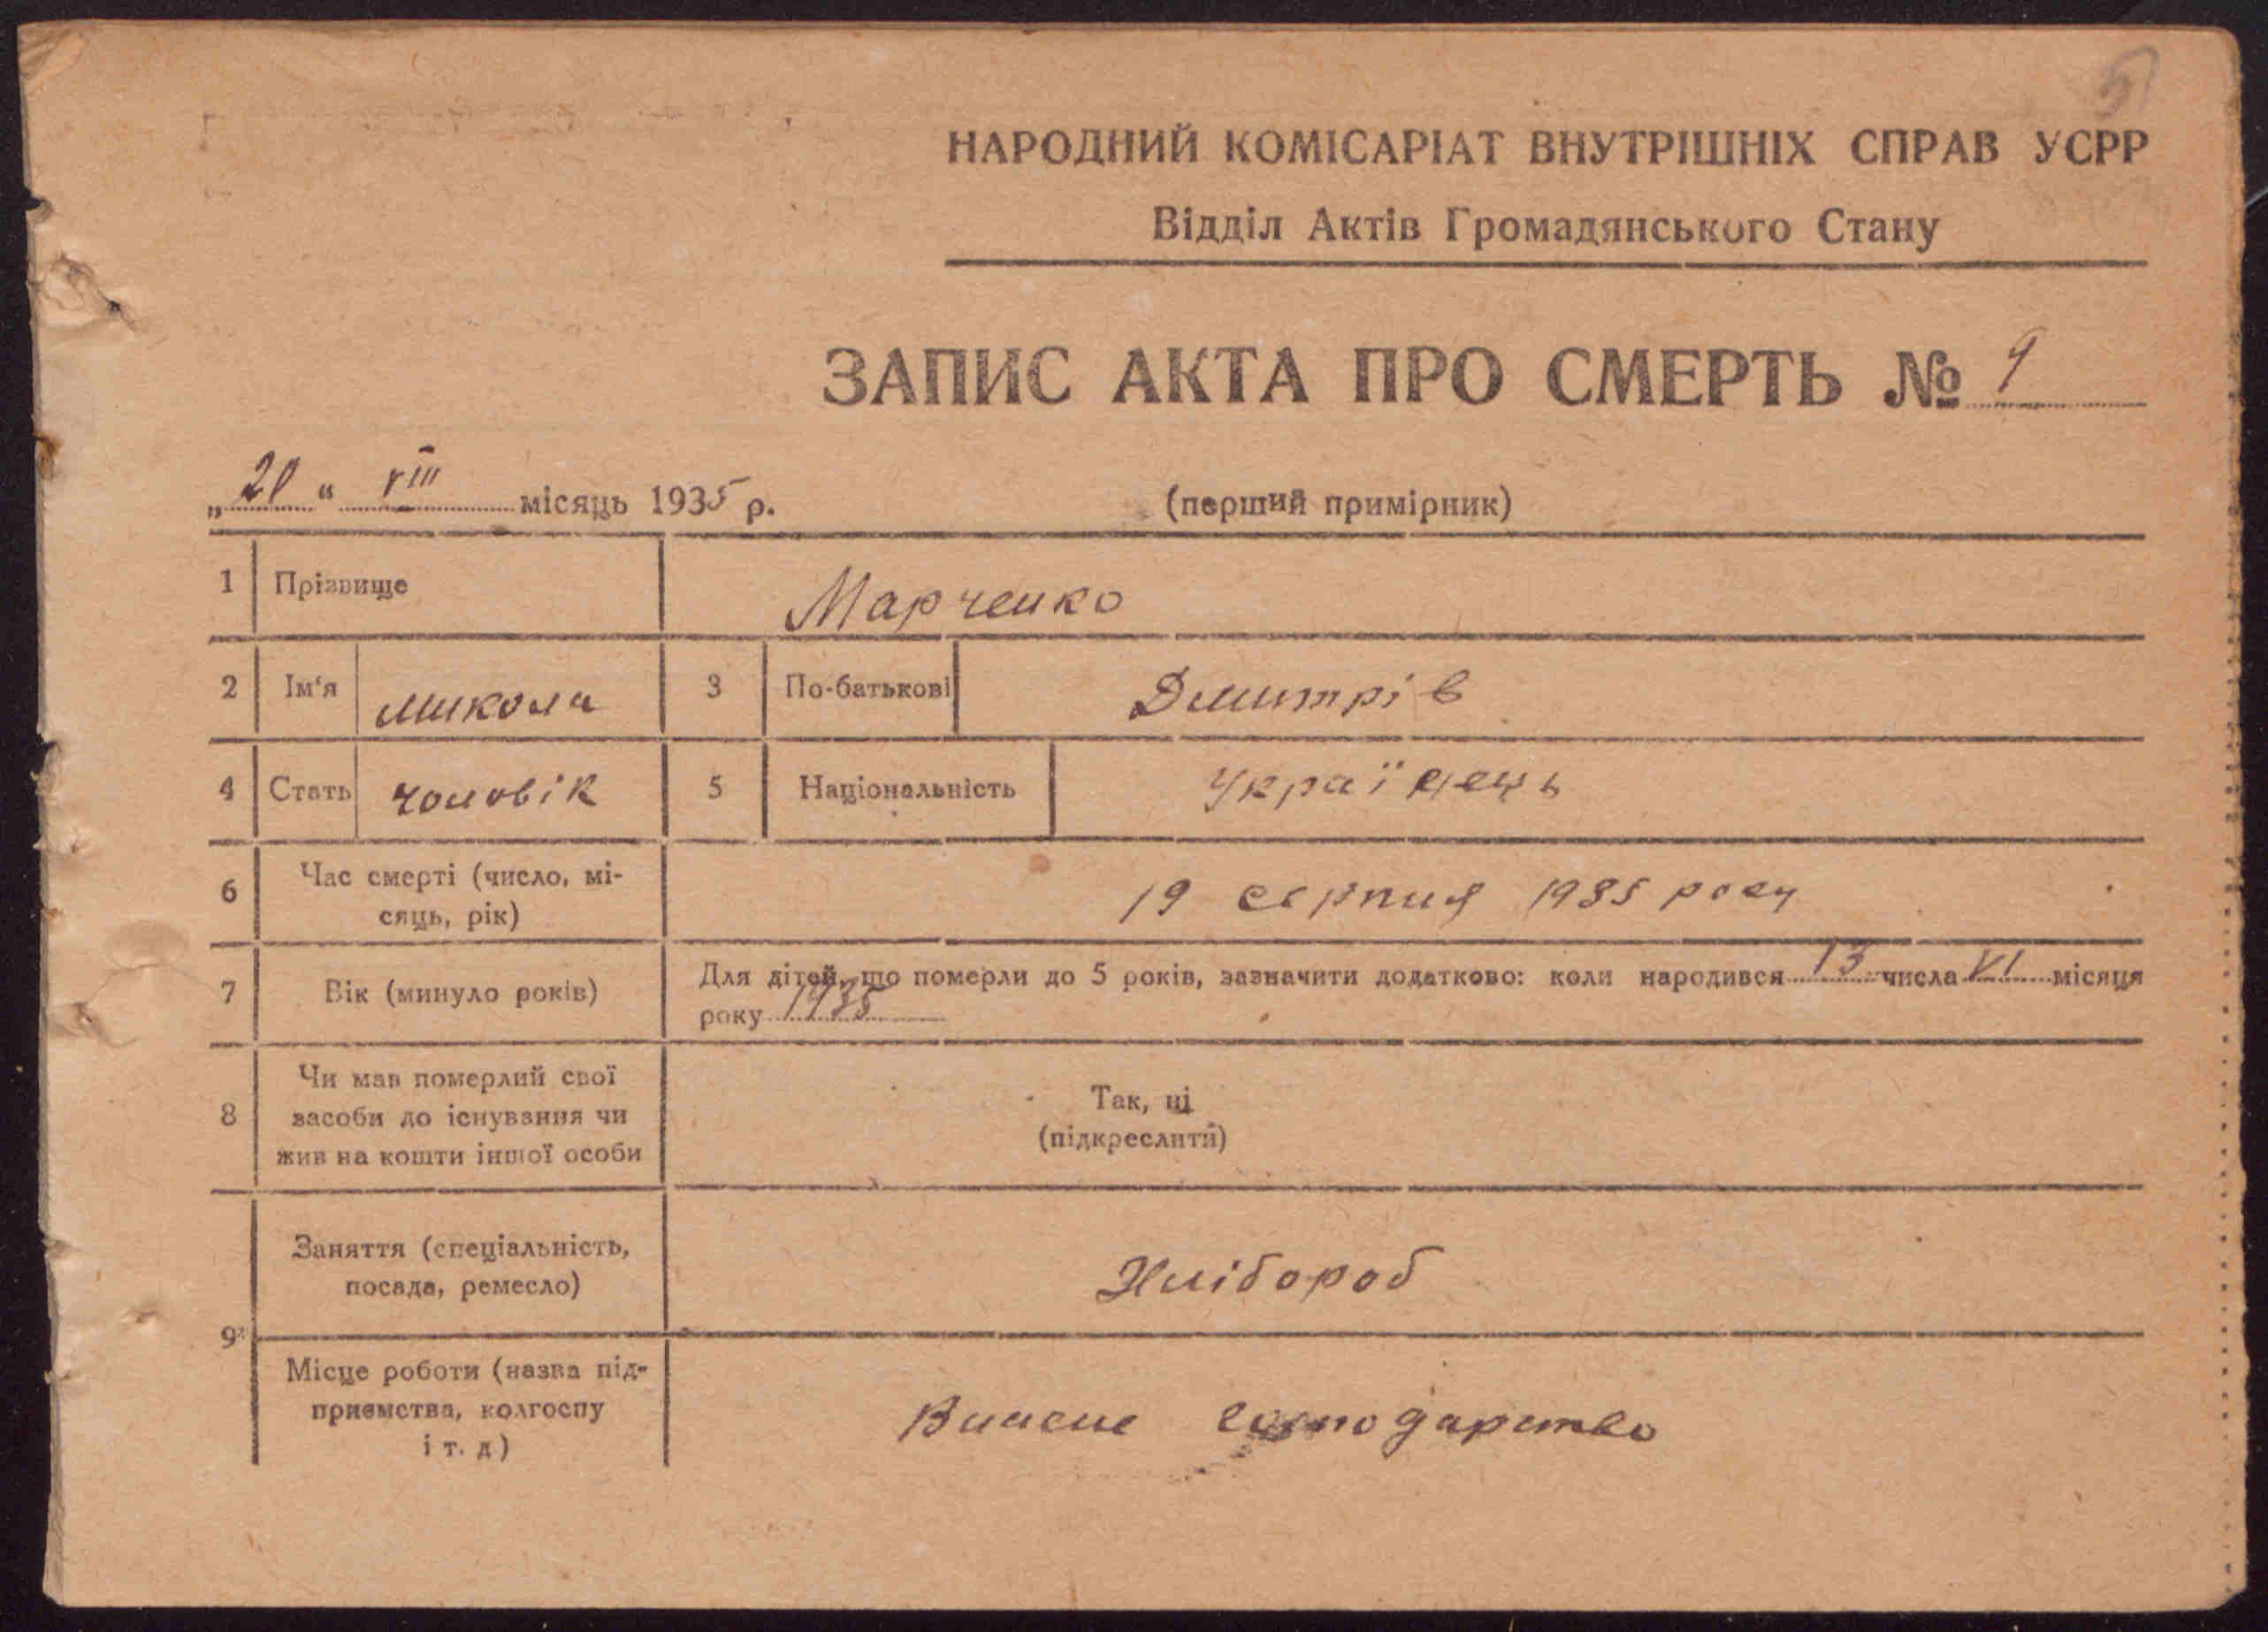 НАРОДНИЙ КОМІСАРІАТ ВНУТРІШНІХ СПРАВ УСРР
Відділ Актів Громадянського Стану
ЗАПИС АКТА ПРО СМЕРТЬ № 9
„20“ VIII місяць 1935 р.
(перший примірник)
1 Прізвище Марченко
2 Ім‘я микола 3 По-батькові Дмитрів
4 Стать чоловік 5 Національність Українець
6 Час смерті (число, мі-
сяць, рік) 19 серпня 1935 року
7 Вік (минуло років) Для дітей, що померли до 5 років, зазначити додатково: коли народився 13 числа VI місяця
року 1935
8 Чи мав померлий свої
засоби до існування чи
жив на кошти іншої особи
Так, ні
(підкреслити)
9 Заняття (спеціальність,
посада, ремесло) Хлібороб
Місце роботи (назва під-
приємства, колгоспу
і т. д) Власне господарство